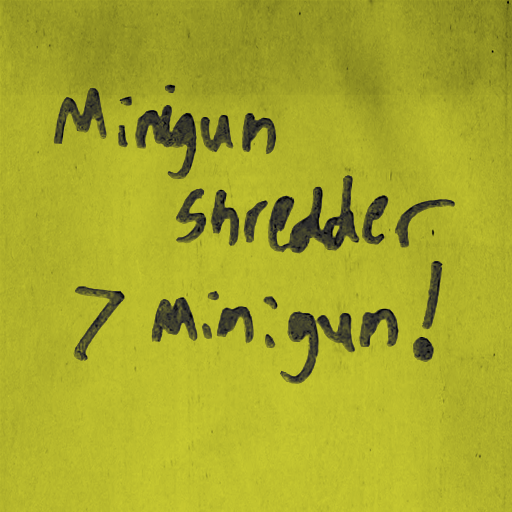 Minigun
shredder
7 minigun!